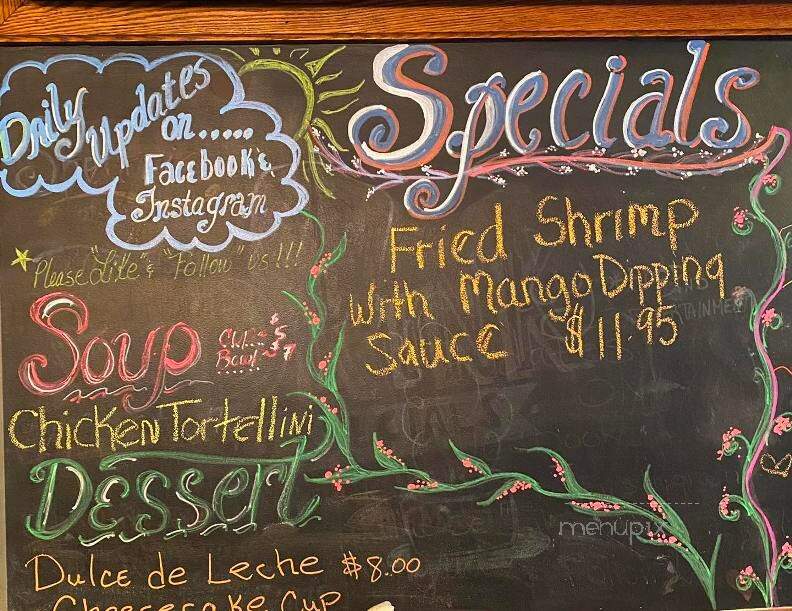 Daily
Updates
on.....
Facebook &
Instagram
*Please "Like" & "Follow" us!!!
Specials
Fried Shrimp
With Mango Dipping
Sauce $11.95
Soup
Cup $5
Bowl $7
Chicken Tortellini
Dessert
Dulce de Leche $8.00
Cheesecake Cup
menupix